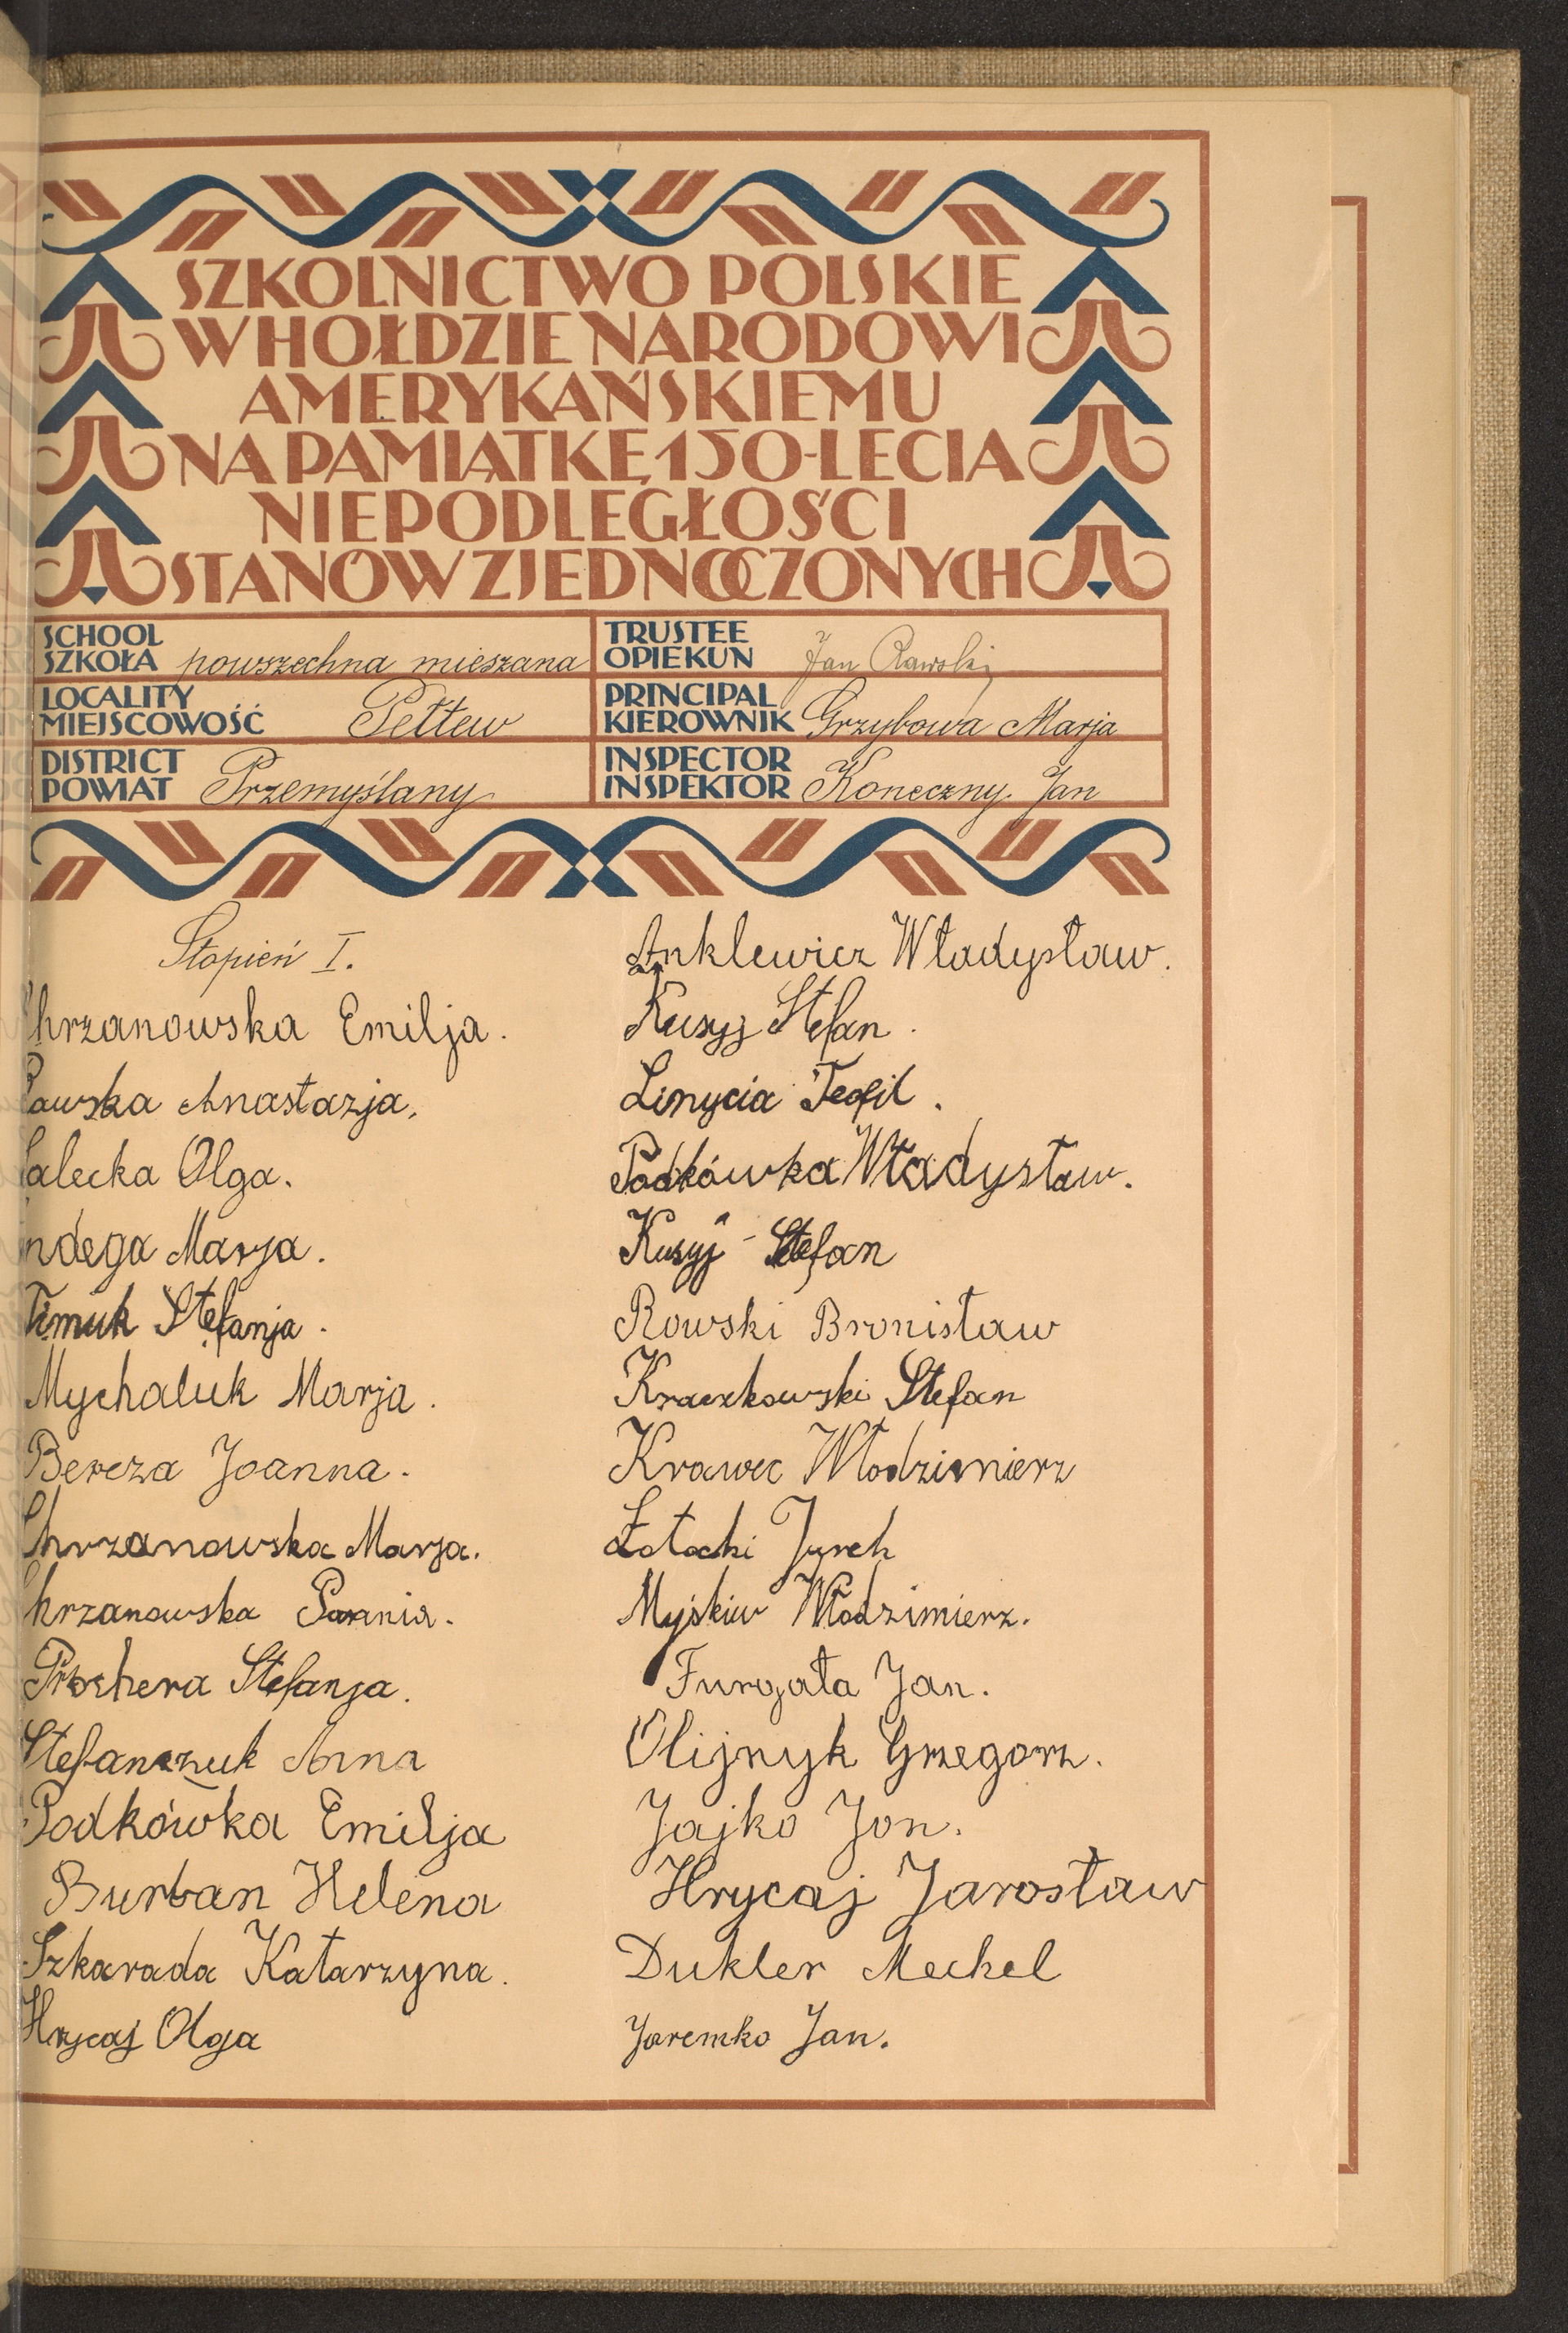 SZKOLNICTWO POLSKIE
W HOŁDZIE NARODOWI
AMERYKAŃSKIEMU
NA PAMIĄTKĘ 150-LECIA
NIEPODLEGŁOŚCI
STANÓW ZJEDNOCZONYCH
SCHOOL
SZKOŁA powszechna mieszana
LOCALITY
MIEJSCOWOŚĆ Pełtew
DISTRICT
POWIAT Przemyślany
TRUSTEE
OPIEKUN Jan Rawski
PRINCIPAL
KIEROWNIK Grzybowa Marja
INSPECTOR
INSPEKTOR Koneczny Jan
Stopień I.
hrzanowska Emilja.
awska Anastazja.
alecka Olga.
ndega Marja.
Timuk Stefanja.
Mychaluk Marja.
Bereza Joanna.
Chrzanowska Marja.
hrzanowska Parania.
Stefanja.
Stefanczuk Anna
Podkówka Emilja
Burban Helena
Szkarada Katarzyna.
Hrycaj Olga
Anklewicz Władysław.
Kusyj Stefan.
Teofil.
Podkówka Władysław.
Kusyj Stefan
Rowski Bronisław
Kraczkowski Stefan
Krawec Włodzimierz
Jurek
Myśkiw Włodzimierz.
Furgała Jan.
Olijnyk Grzegorz.
Jajko Jon.
Hrycaj Jarosław
Dukler Mechel
Jaremko Jan.